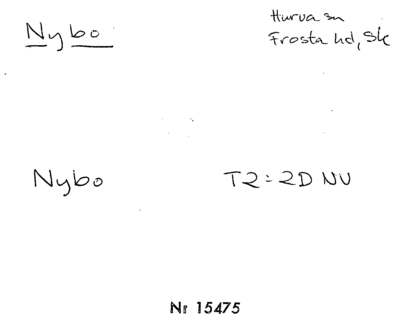 Nybo
Hurva sn
Frosta hd, Sk
Nybo
T2:2D NV
Nr 15475